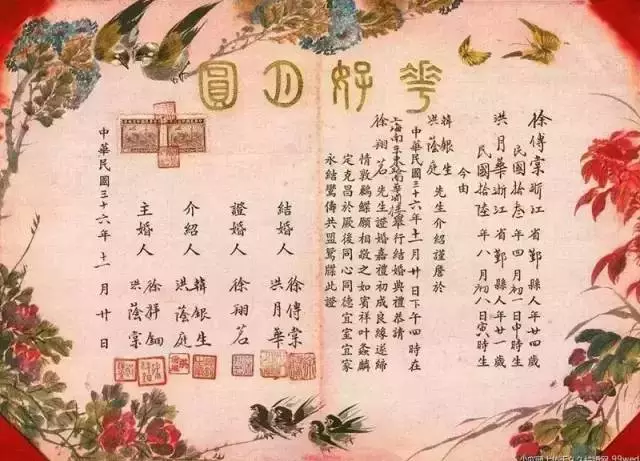 花好月圓
徐傅棠浙江省鄞縣人年廿四歲
民國拾叁年四月初一日申時生
洪月華浙江省鄞縣人年廿一歲
民國拾陸年八月初八日寅時生
今由
韓銀生
洪蔭庭
先生介紹謹詹於
中華民國三十六年十一月廿日下午四時在
上海南京東路南華酒樓舉行結婚典禮恭請
徐翔茗先生證婚嘉禮初成良緣遂締
情敦鶼鰈願相敬之如賓祥叶螽麟
定克昌於厥後同心同德宜室宜家
永結鸞儔共盟鴛牒此證
結婚人
徐傅棠
洪月華
證婚人
徐翔茗
介紹人
韓銀生
洪蔭庭
主婚人
徐
洪蔭棠
中華民國三十六年十一月廿日
99wed